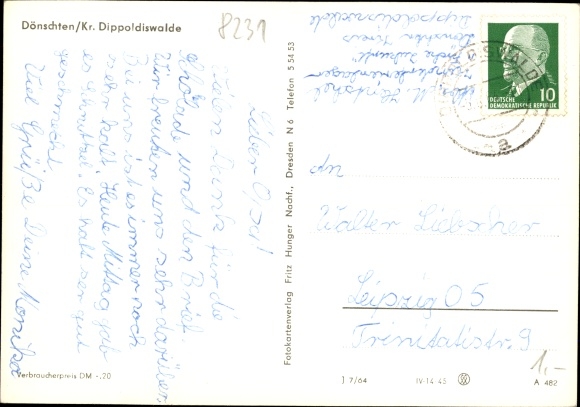 Dönschten/Kr. Dippoldiswalde
8231
Lieber Opa!
Vielen Dank für die
und den Brief.
Wir freuten uns sehr darüber.
Bei uns ist es immer noch
sehr kalt. Heute Mittag gab
es Schnitzel. Es hat sehr gut
geschmeckt.
Viel Grüße Deine Monika
Verbraucherpreis DM -,20
Fotokartenverlag Fritz Hunger Nachf., Dresden N 6 Telefon 5 54 53
Dönschten Kreis
Dippoldiswalde
10
DEUTSCHE
DEMOKRATISCHE REPUBLIK
An
Walter Liebscher
Leipzig 05
Trinitatisstr. 9
1,-
J 7/64 IV-14-45 A 482